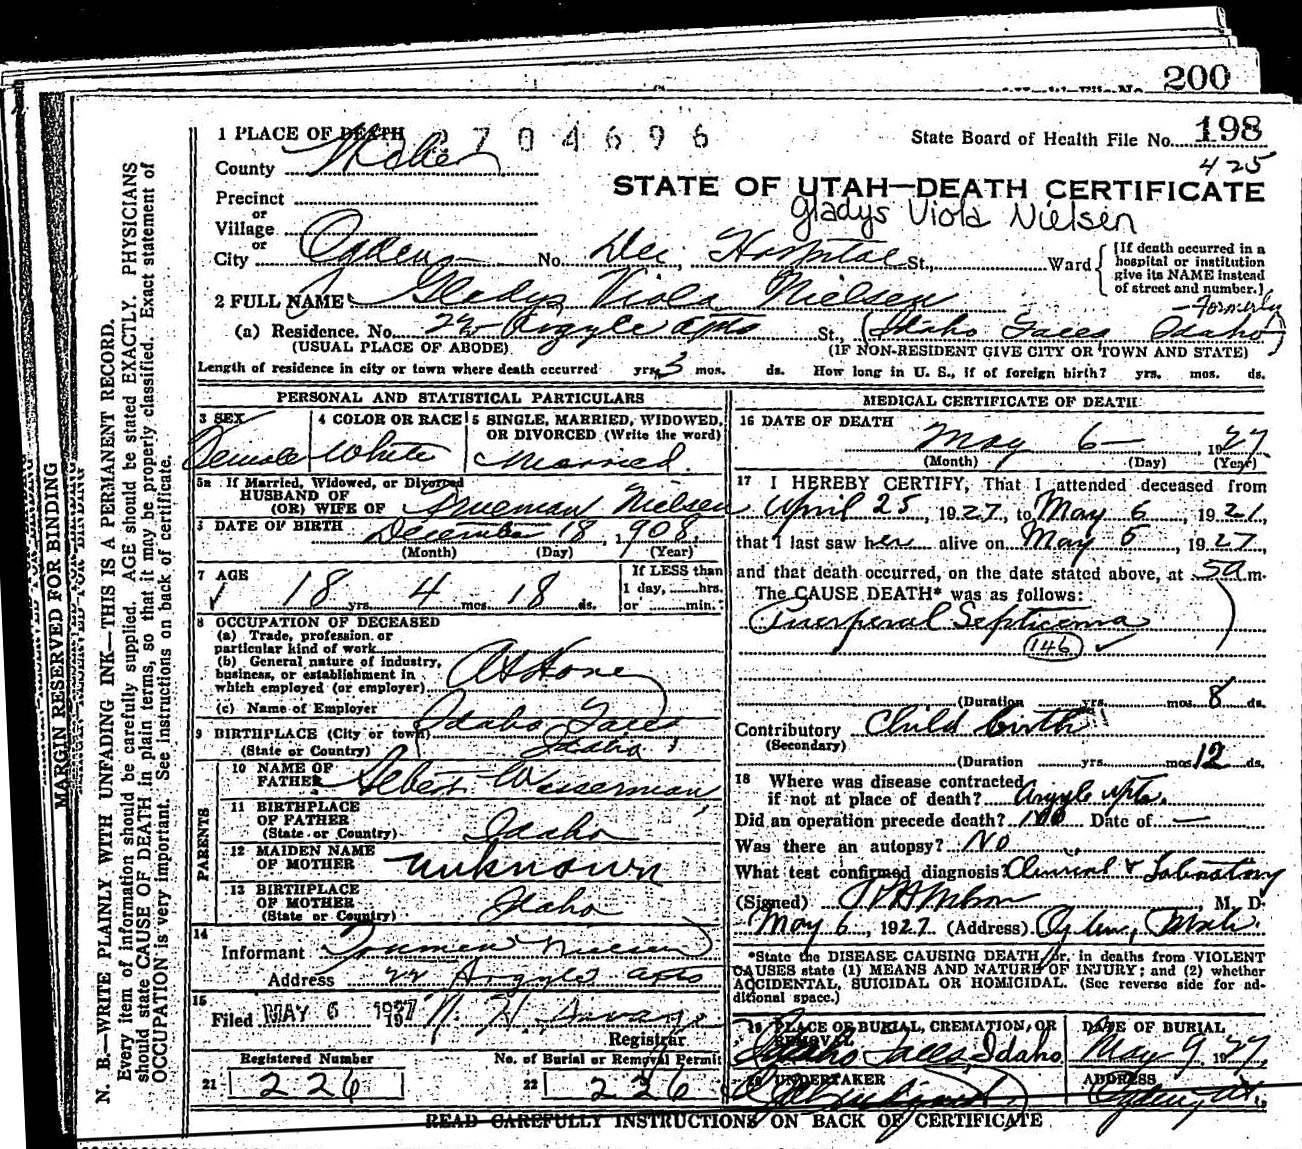 200
1 PLACE OF DEATH 2704696
State Board of Health File No. 198
County Weber
425
STATE OF UTAH—DEATH CERTIFICATE
Precinct
Gladys Viola Nielsen
or
Village
or
City Ogden No. Dee Hospital St., Ward
{If death occurred in a
hospital or institution
give its NAME instead
of street and number.}
2 FULL NAME Gladys Viola Nielsen
Formerly
(a) Residence. No. 22 Argyle Apts St., (Idaho Falls Idaho)
(USUAL PLACE OF ABODE) (IF NON-RESIDENT GIVE CITY OR TOWN AND STATE)
Length of residence in city or town where death occurred yrs. 3 mos. ds. How long in U. S., if of foreign birth? yrs. mos. ds.
PERSONAL AND STATISTICAL PARTICULARS
3 SEX 4 COLOR OR RACE 5 SINGLE, MARRIED, WIDOWED,
OR DIVORCED (Write the word)
Female White Married.
5a If Married, Widowed, or Divorced
HUSBAND OF
(OR) WIFE OF Trueman Nielsen
DATE OF BIRTH December 18, 1908
(Month) (Day) (Year)
7 AGE If LESS than
1 day, hrs.
18 yrs. 4 mos. 18 ds. or min.
8 OCCUPATION OF DECEASED
(a) Trade, profession, or
particular kind of work
(b) General nature of industry,
business, or establishment in
which employed (or employer) At Home
(c) Name of Employer
9 BIRTHPLACE (City or town) Idaho Falls
(State or Country) Idaho
PARENTS
10 NAME OF
FATHER Albert Wasserman
11 BIRTHPLACE
OF FATHER
(State or Country) Idaho
12 MAIDEN NAME
OF MOTHER unknown
13 BIRTHPLACE
OF MOTHER
(State or Country) Idaho
14
Informant Trueman Nielsen
Address 22 Argyle apts
15
Filed MAY 6 1927 19 Savage
Registrar
Registered Number No. of Burial or Removal Permit
21 226 22 226
MEDICAL CERTIFICATE OF DEATH
16 DATE OF DEATH
May 6, 1927
(Month) (Day) (Year)
17 I HEREBY CERTIFY, That I attended deceased from
April 25, 1927, to May 6, 1921,
that I last saw her alive on May 5, 1927,
and that death occurred, on the date stated above, at 5 a m.
The CAUSE DEATH* was as follows:
Puerperal Septicema
146 ✓
(Duration yrs. mos. 8 ds.
Contributory Child birth
(Secondary)
(Duration yrs. mos. 12 ds.
18 Where was disease contracted
if not at place of death? Argyle apts.
Did an operation precede death? no Date of —
Was there an autopsy? No
What test confirmed diagnosis? Clinical & Laboratory
(Signed) M. D.
May 6, 1927 (Address) Ogden, Utah.
*State the DISEASE CAUSING DEATH, or, in deaths from VIOLENT
CAUSES state (1) MEANS AND NATURE OF INJURY; and (2) whether
ACCIDENTAL, SUICIDAL OR HOMICIDAL. (See reverse side for ad-
ditional space.)
19 PLACE OF BURIAL, CREMATION, OR
REMOVAL DATE OF BURIAL
Idaho Falls, Idaho May 9, 1927
UNDERTAKER ADDRESS
Ogden, Ut.
READ CAREFULLY INSTRUCTIONS ON BACK OF CERTIFICATE
MARGIN RESERVED FOR BINDING
N. B.—WRITE PLAINLY WITH UNFADING INK—THIS IS A PERMANENT RECORD.
Every item of information should be carefully supplied. AGE should be stated EXACTLY. PHYSICIANS
should state CAUSE OF DEATH in plain terms, so that it may be properly classified. Exact statement of
OCCUPATION is very important. See instructions on back of certificate.